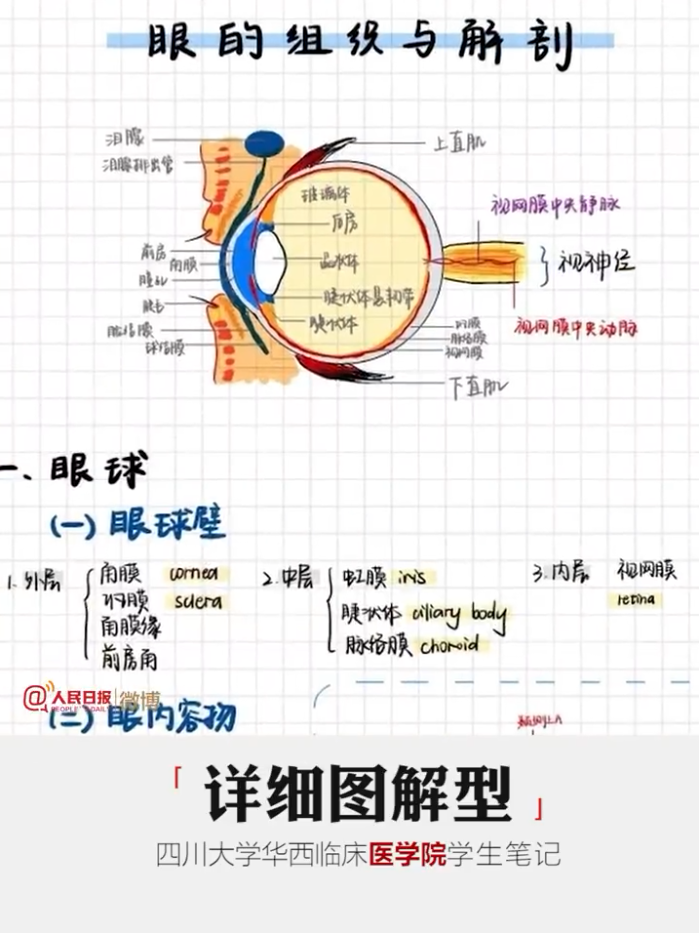 眼的组织与解剖
泪腺
泪腺排出管
上直肌
玻璃体
后房
视网膜中央静脉
前房
角膜
瞳孔
晶状体
视神经
睫毛
睫状体悬韧带
睫状体
睑结膜
球结膜
巩膜
脉络膜
视网膜
视网膜中央动脉
下直肌
一、眼球
(一)眼球壁
1.外层
角膜 cornea
巩膜 sclera
角膜缘
前房角
2.中层
虹膜 iris
睫状体 ciliary body
脉络膜 choroid
3.内层 视网膜
retina
@人民日报 微博
PEOPLE'S DAILY
(二)眼内容物
「详细图解型」
四川大学华西临床医学院学生笔记